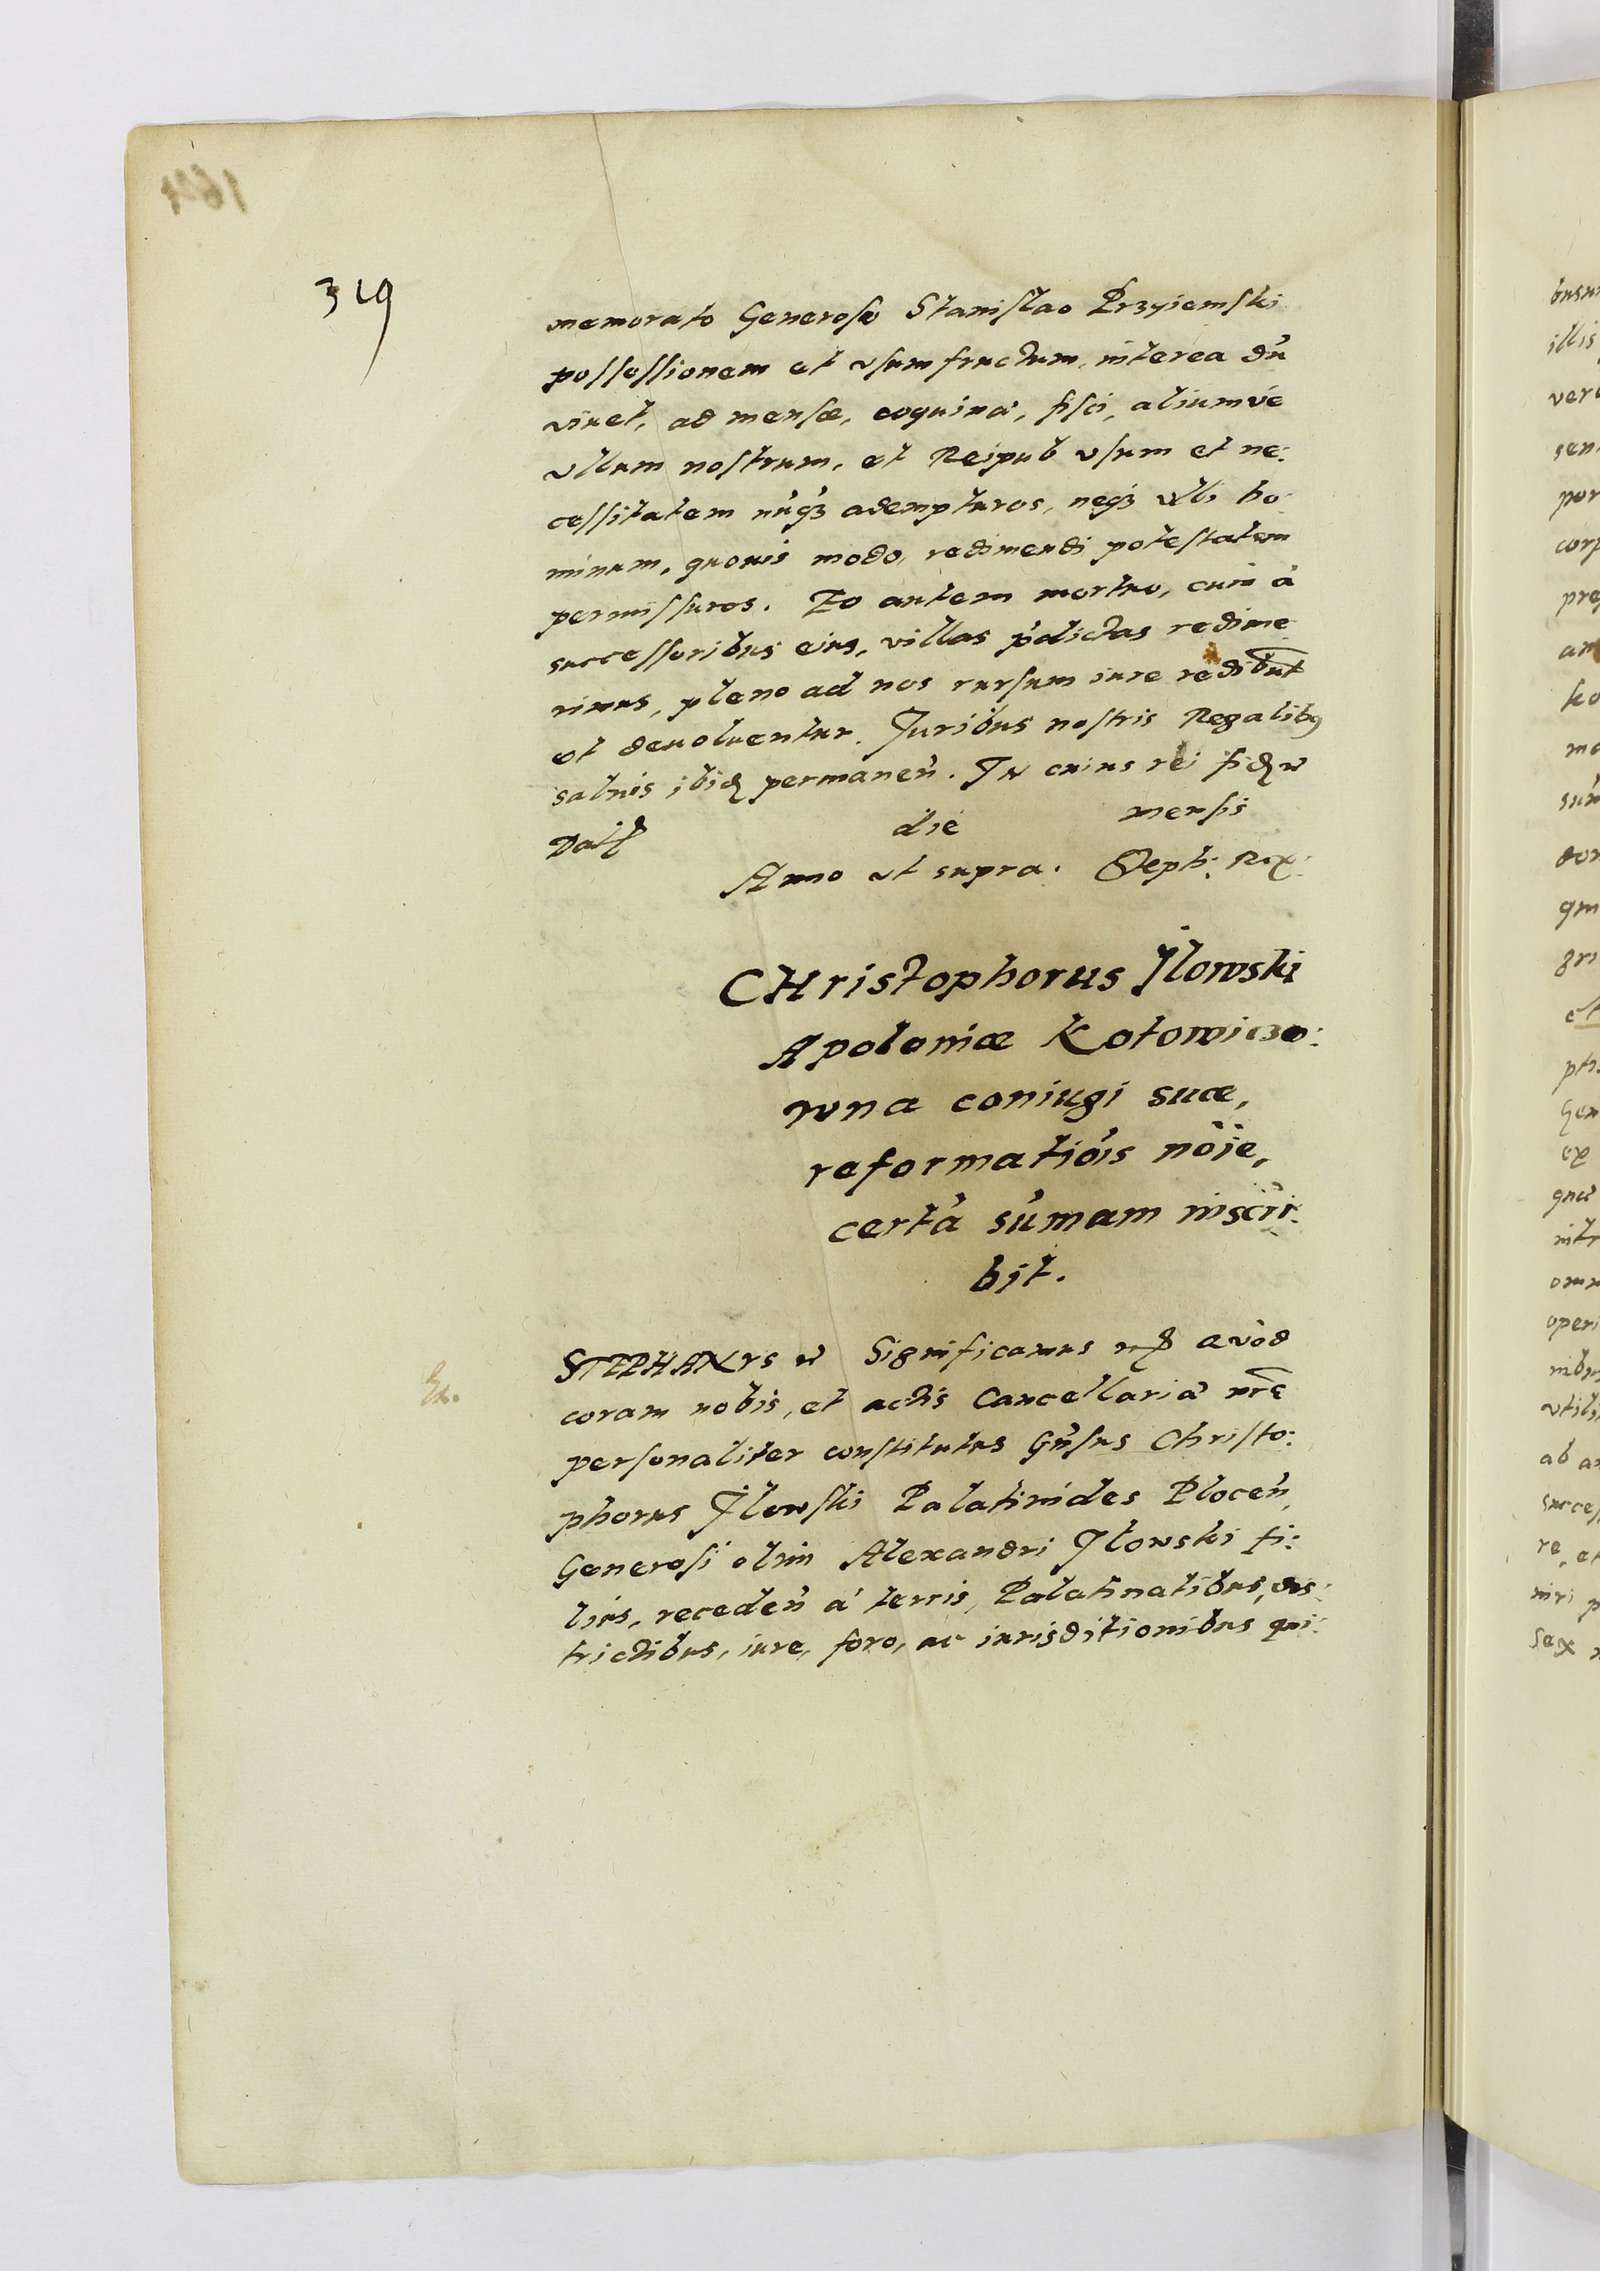 319
memorato Generoso Stanislao Przyiemski
possessionem et vsumfructum, interea dũ
viuet, ad mensæ, coquinæ, fisci, aliumúe
vllum nostrum, et Reipub vsum et ne:
cessitatem nũqȝ adempturos, neqȝ vlli ho
minum, quouis modo, redimendi potestatem
permissuros. Eo autem mortuo, cum à
successoribus eius, villas p̃dictas redime
rimus, pleno ad nos rursum iure redibũt
et deuoluentur. Juribus nostris Regalibꝯ
saluis ibidꝫ permaneñ. In cuius rei fidꝫ
Datꝫ die mensis
Anno vt supra. Steph: Rex.
CHristophorus Jlowski
Apoloniæ Kotowiczo:
wna coniugi suæ,
reformatiõis nõie,
certã sũmam inscri:
bit.
STEPHANVS Significamus Quòd
coram nobis, et actis Cancellariæ nr̃æ
personaliter constitutus Gñsus Christo:
phorus Jlowski Palatinides Ploceñ,
Generosi olim Alexandri Jlowski fi:
lius, recedeñ à terris, Palatinatibus, dis:
trictibus, iure, foro, ac iurisditionibus qui: